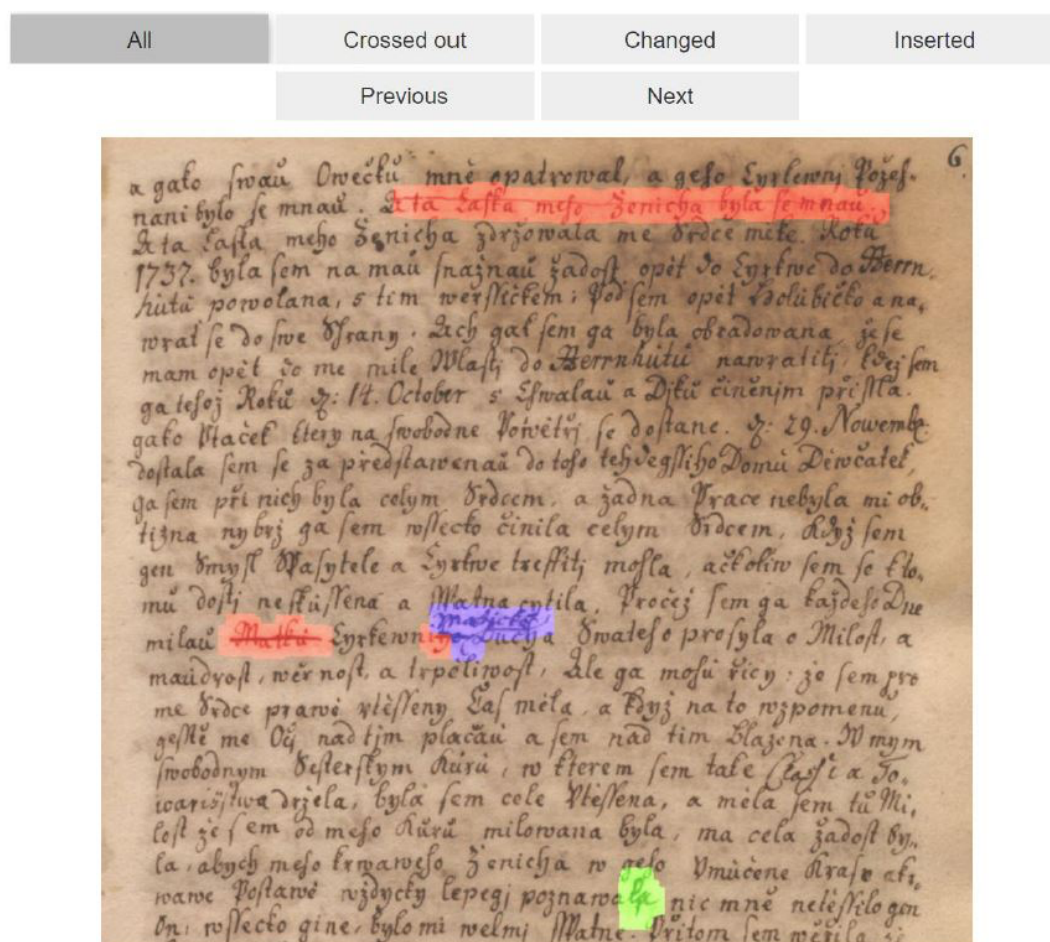 All Crossed out Changed Inserted
Previous Next
6.
a gako swau Owečku mně opatrowal, a geho Cyrkewnj Požeh-
nani bylo se mnau. A ta Laska meho Ženicha byla se mnau.
A ta Laska meho Ženicha zdržowala me Srdce mile. Roku
1737. byla sem na mau snažnau žadost opět do Cyrkwe do Herrn-
hutu powolana, s tim werssičkem: Pod sem opět Holubičko a na-
wrat se do swe Schrany. Ach gak sem ga byla obradowana, že se
mam opět do me mile Wlasti do Herrnhutu nawratiti, kdež sem
ga tehož Roku d: 14. October s Chwalau a Djku činěnjm přissla.
gako Ptaček ktery na swobodne Powětřj se dostane. d: 29. Nowembr
dostala sem se za představenau do toho tehdegssiho Domu Děwčatek,
ga sem při nich byla celym Srdcem, a žadna Prace nebyla mi ob-
tižna nybrž ga sem wssecko činila celym Srdcem, Když sem
gen Smysl Spasytele a Cyrkwe treffiti mohla, ačkoliw sem se k to-
mu dosti neskussena a Sspatna cytila. Pročež sem ga každeho Dne
Matičku
milau Matku Cyrkewni Ducha Swateho prosyla o Milost, a
maudrost, wěrnost, a trpěliwost, Ale ga mohu řicy: že sem pro
me Srdce prawě utěsseny Čas měla, a když na to wzpomenu,
gesstě me Oči nad tjm plačau a sem nad tim blažena. W mym
swobodnym Sesterskym Kůru, w kterem sem take a To-
warisstwa držela, byla sem cele Utěssena, a měla sem tu Mi-
lost že sem od meho Kůru milowana byla, ma cela žadost by-
la, abych meho krwaweho Ženicha w geho Umučene Krase a kr-
wawe Postawě wždycky lepegi poznawala nic mně netěssilo gen
On: wssecko gine, bylo mi welmi Sspatne. Přitom sem